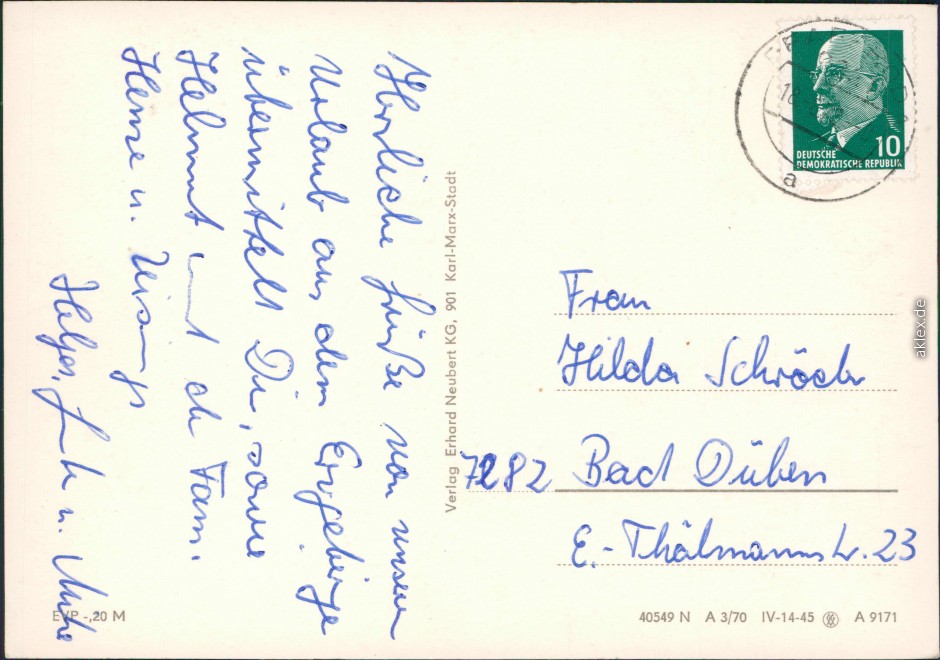 Herzliche Grüße von unserem
Urlaub aus dem Erzgebirge
übermittelt Dir, sowie
Helmut und der Fam.
Hense u.
Helga, u.
Verlag Erhard Neubert KG, 901 Karl-Marx-Stadt
a
10
DEUTSCHE
DEMOKRATISCHE REPUBLIK
Frau
Hilda Schröder
7282 Bad Düben
E.-Thälmannstr. 23
EVP -,20 M
40549 N A 3/70 IV-14-45 A 9171
aklex.de